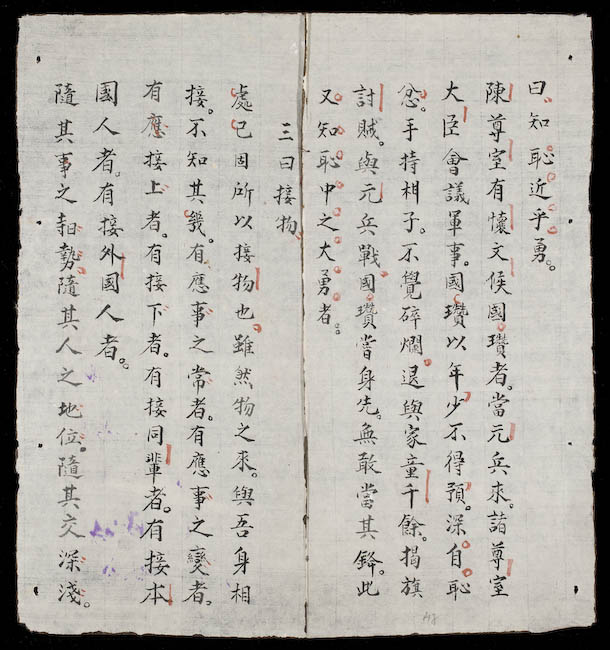 曰、知恥近乎勇。
陳尊室有懷文侯國瓚者。當元兵來。諸尊室
大臣會議軍事。國瓚以年少不得預。深自恥
忿。手持柑子。不覺碎爛。退與家童千餘。揭旗
討賊。與元兵戰。國瓚嘗身先。無敢當其鋒。此
又知恥中之大勇者。
三曰接物、
處己固所以接物也。雖然物之來。與吾身相
接。不知其幾。有應事之常者。有應事之變者。
有應接上者。有接下者。有接同輩者。有接本
國人者。有接外國人者。
隨其事之勢。隨其人之地位。隨其交深淺。